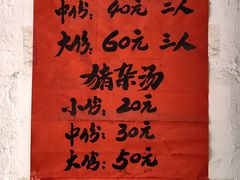 中份：40元 二人
大份：60元 三人
猪杂汤
小份：20元
中份：30元
大份：50元